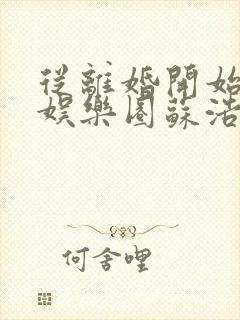 從離婚開始
娛樂圈蘇浩
何舍哩